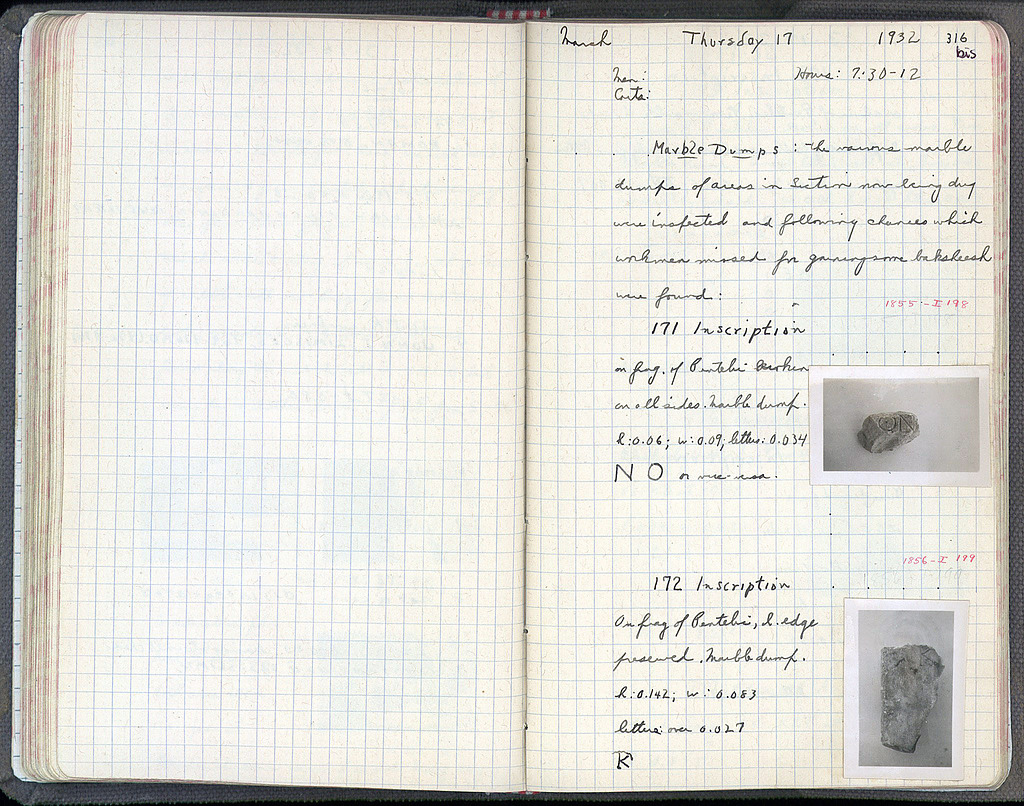 March Thursday 17 1932 316
bis
Men: Hours: 7:30-12
Carts:
Marble Dumps: The various marble
dumps of areas in Section now being dug
were inspected and following chances which
workmen missed for gaining some baksheesh
were found:
1855 - I 198
171 Inscription
on frag. of Pentelic broken
on all sides. Marble dump.
h: 0.06; w: 0.09; letters: 0.034
N O or vice-versa.
ON
1856 - I 199
172 Inscription
On frag of Pentelic, l. edge
preserved. Marble dump.
h: 0.142; w: 0.083
letters: over 0.027
K